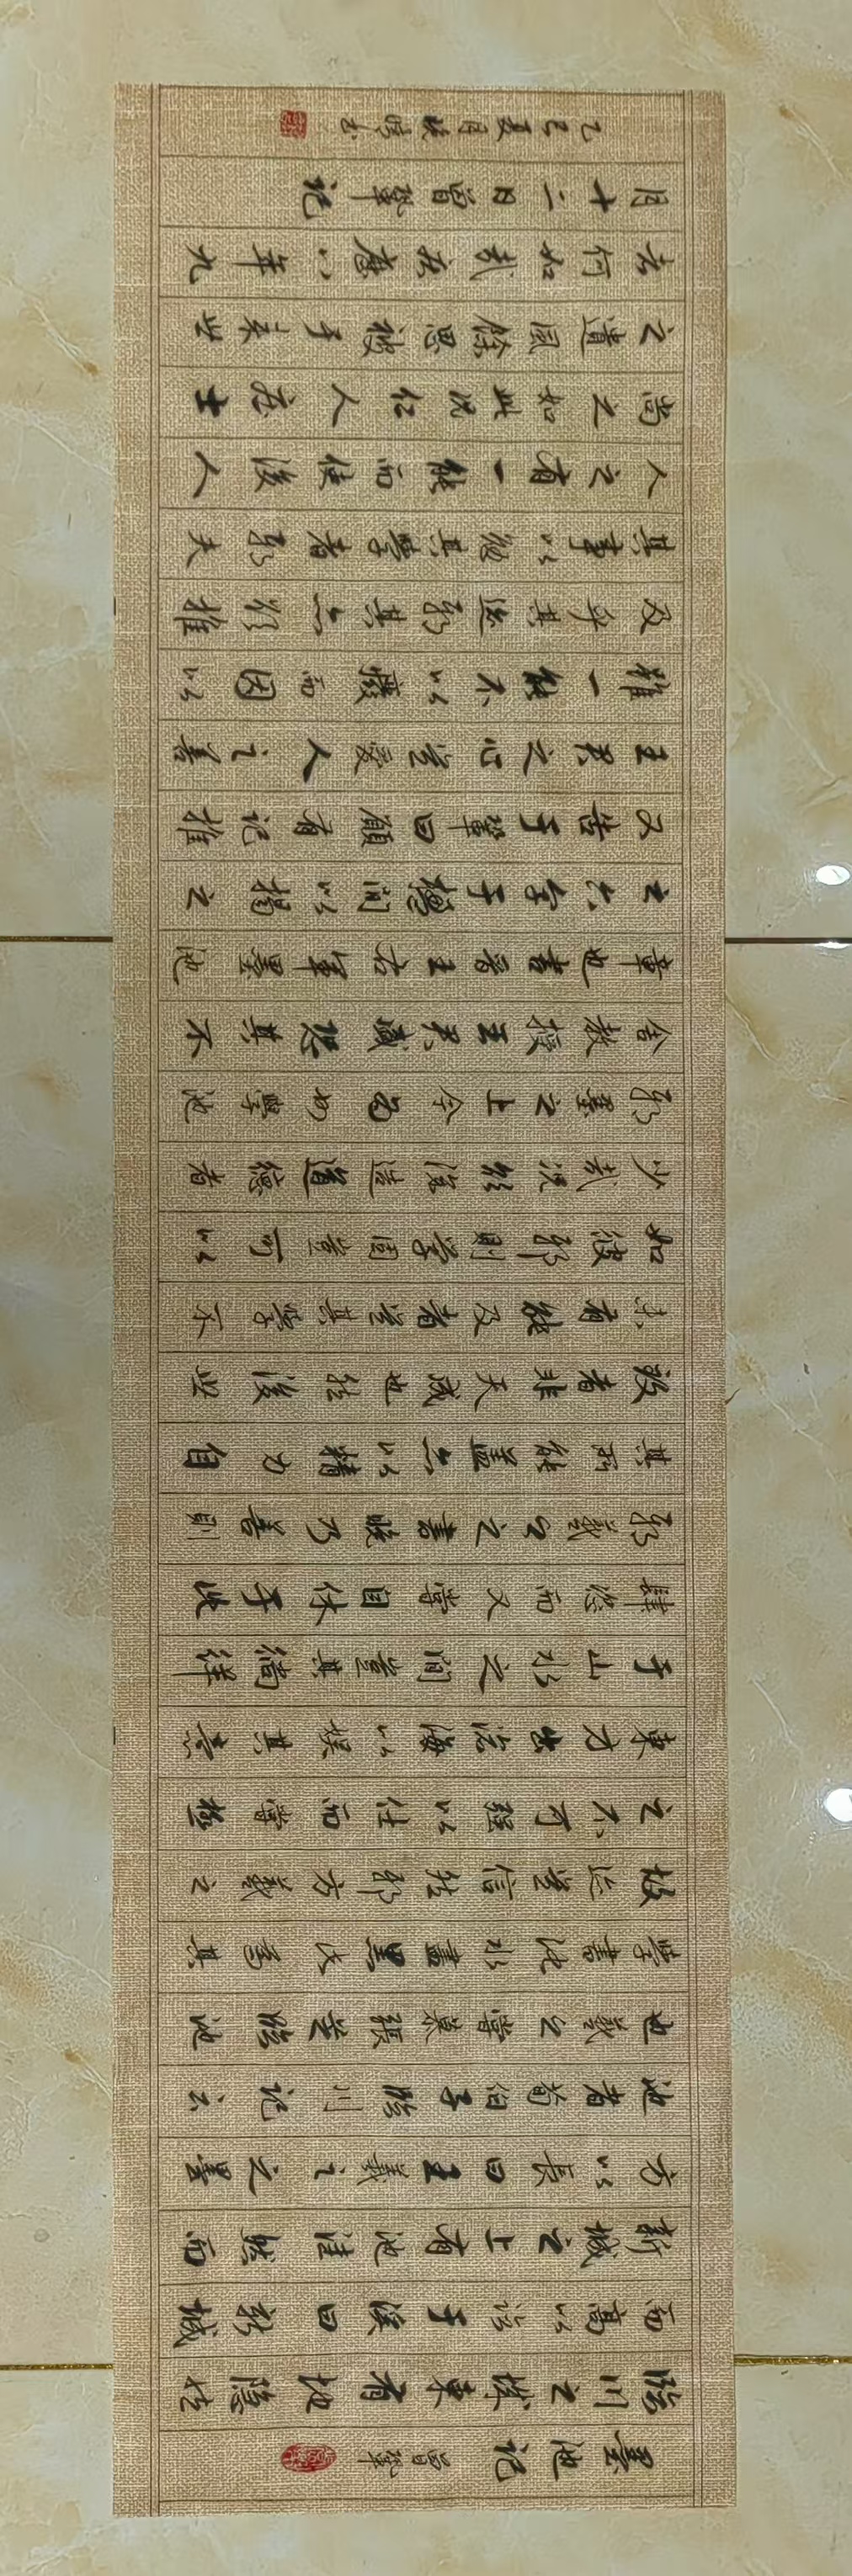 墨池記 曾鞏
臨川之城東有地隱然
而高以臨于溪曰新城
新城之上有池洼然而
方以長曰王羲之之墨
池者荀伯子臨川記云
也羲之嘗慕張芝臨池
學書池水盡黑此爲其
故迹豈信然邪方羲之
之不可強以仕而嘗極
東方出滄海以娛其意
于山水之間豈其徜徉
肆恣而又嘗自休于此
邪羲之之書晚乃善則
其所能蓋亦以精力自
致者非天成也然後世
未有能及者豈其學不
如彼邪則學固豈可以
少哉況欲深造道德者
邪墨之上今爲州學池
舍教授王君盛恐其不
章也書晉王右軍墨池
之六字于楹間以揭之
又告于鞏曰願有記推
王君之心豈愛人之善
雖一能不以廢而因以
及乎其迹邪其亦欲推
其事以勉其學者邪夫
人之有一能而使後人
尚之如此況仁人莊士
之遺風餘思被于來世
者何如哉慶曆八年九
月十二日曾鞏記
乙巳夏月書